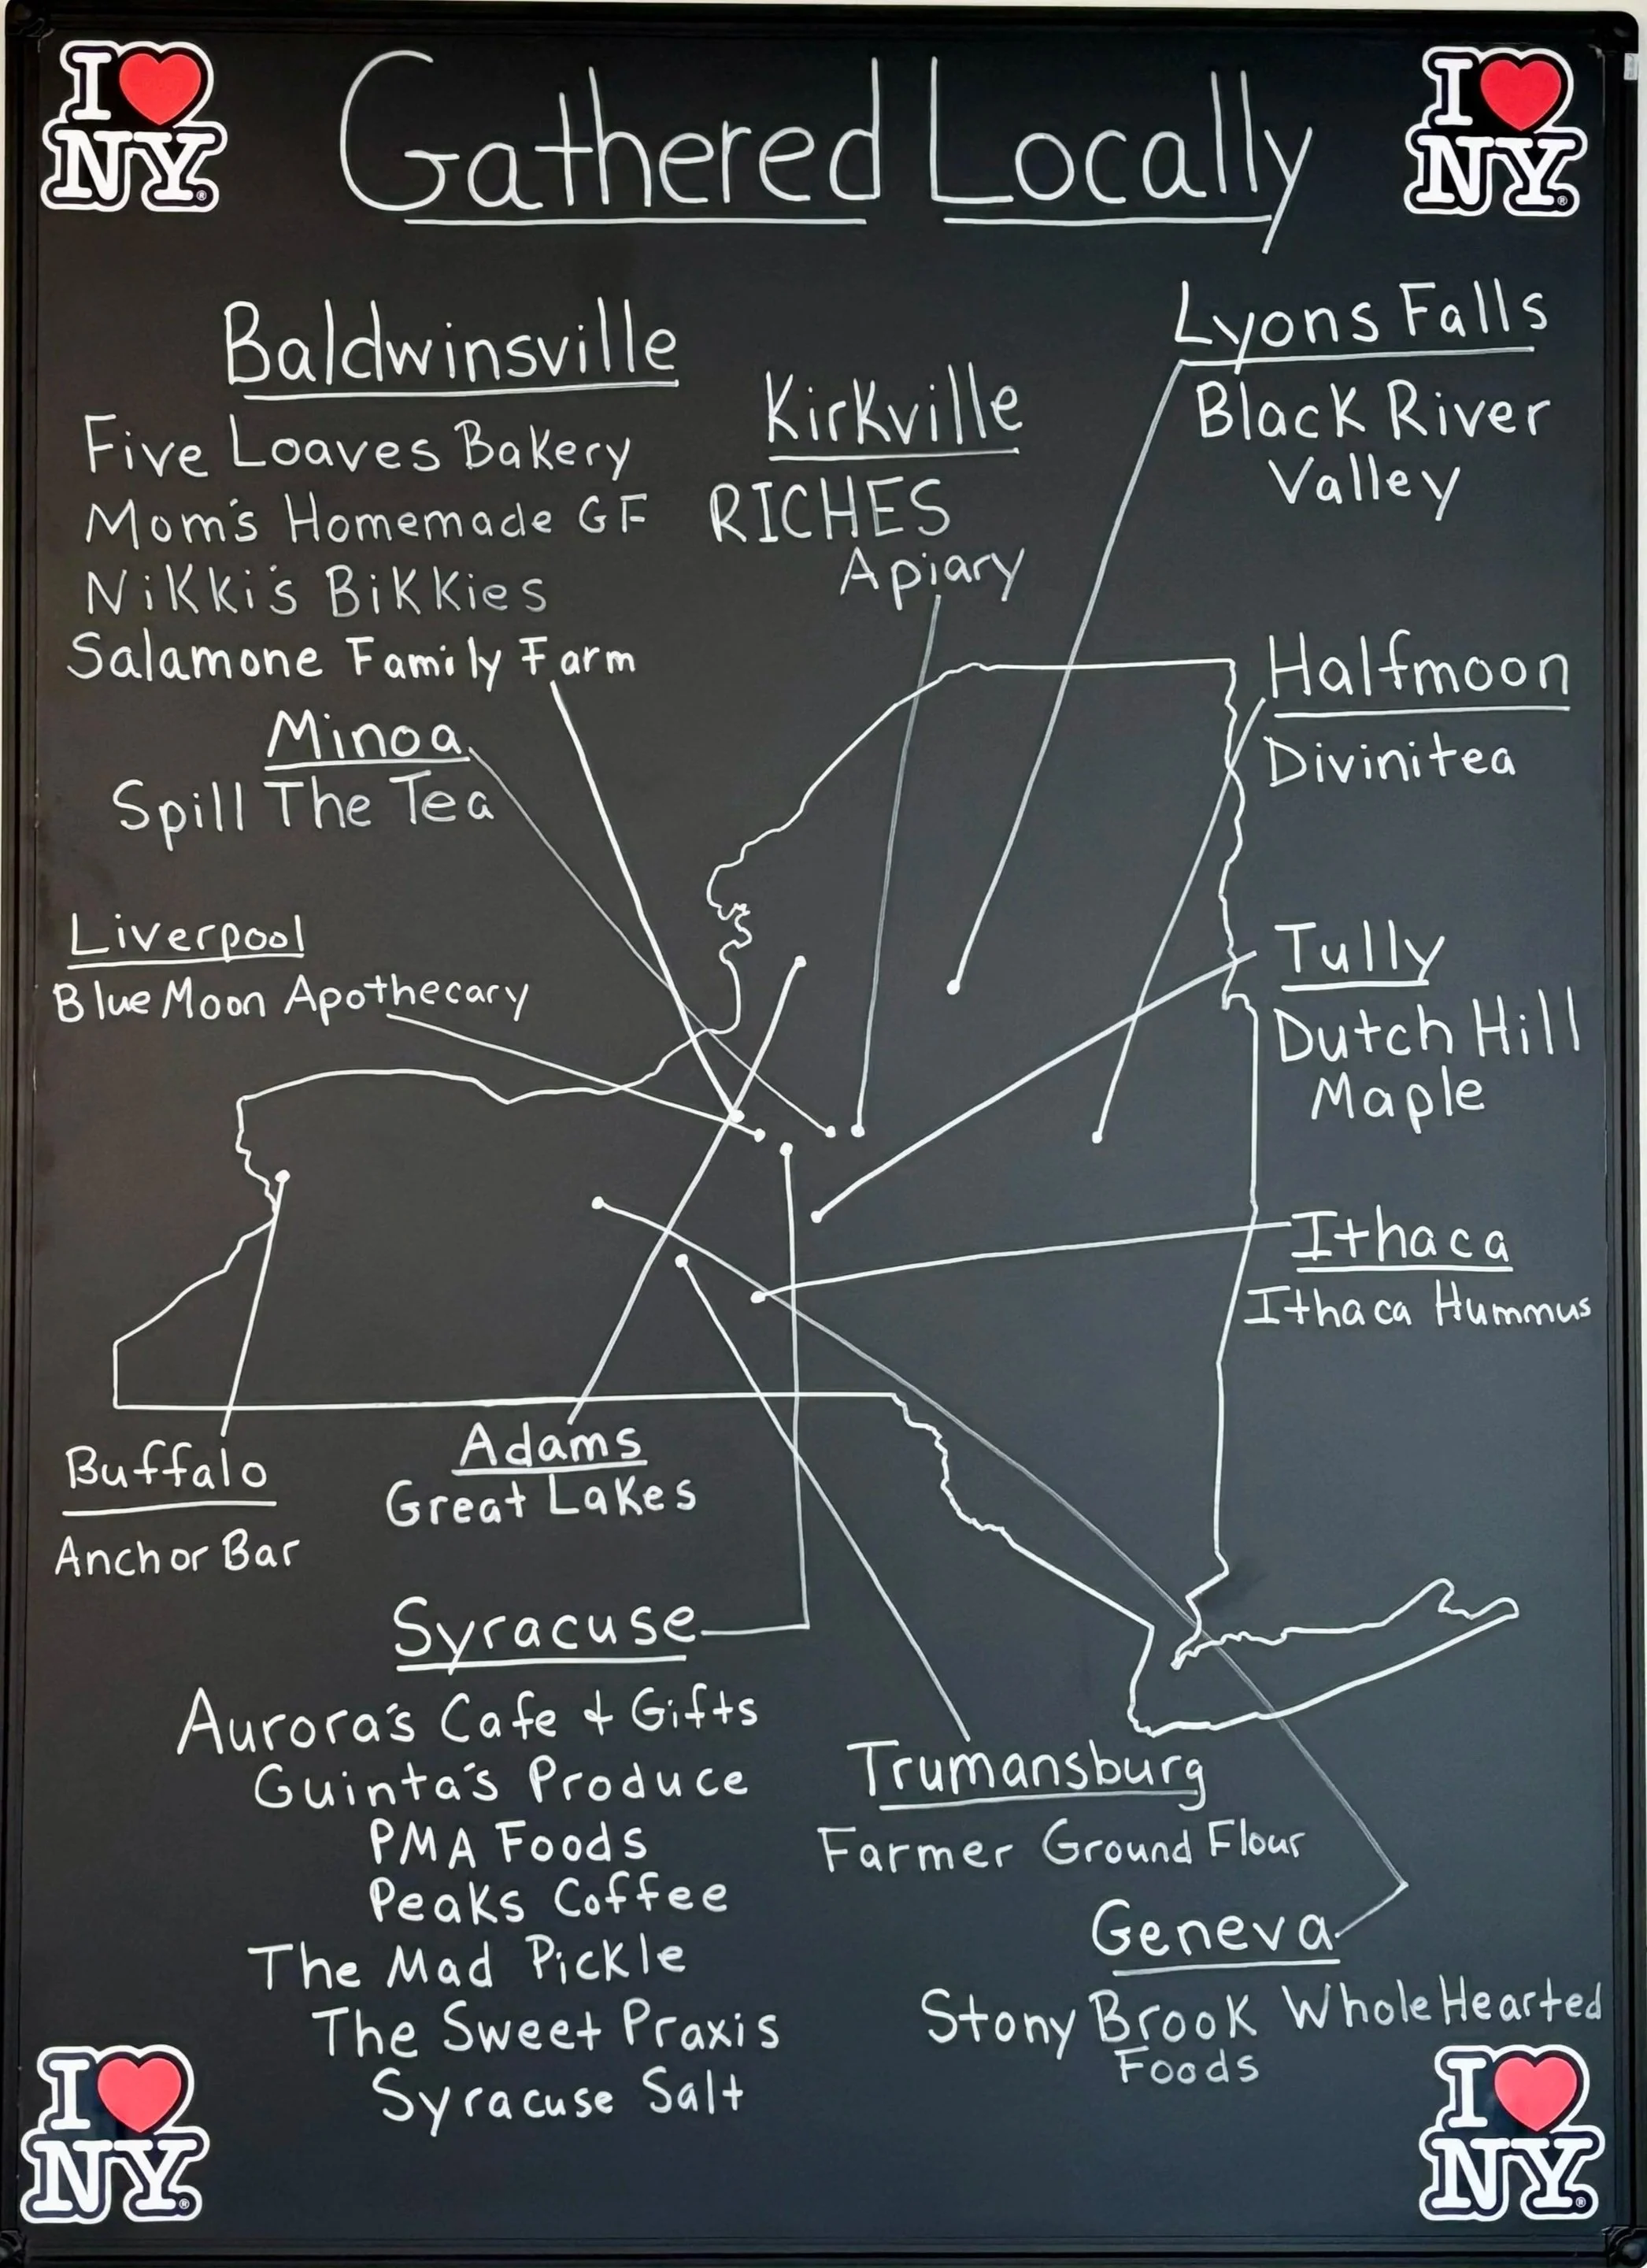 I ❤ NY®
I ❤ NY®
Gathered Locally
Baldwinsville
Five Loaves Bakery
Mom's Homemade GF
Nikki's Bikkies
Salamone Family Farm
Kirkville
RICHES
Apiary
Lyons Falls
Black River
Valley
Minoa
Spill The Tea
Halfmoon
Divinitea
Liverpool
Blue Moon Apothecary
Tully
Dutch Hill
Maple
Ithaca
Ithaca Hummus
Buffalo
Anchor Bar
Adams
Great Lakes
Syracuse
Aurora's Cafe & Gifts
Guinta's Produce
PMA Foods
Peaks Coffee
The Mad Pickle
The Sweet Praxis
Syracuse Salt
Trumansburg
Farmer Ground Flour
Geneva
Stony Brook WholeHearted
Foods
I ❤ NY®
I ❤ NY®